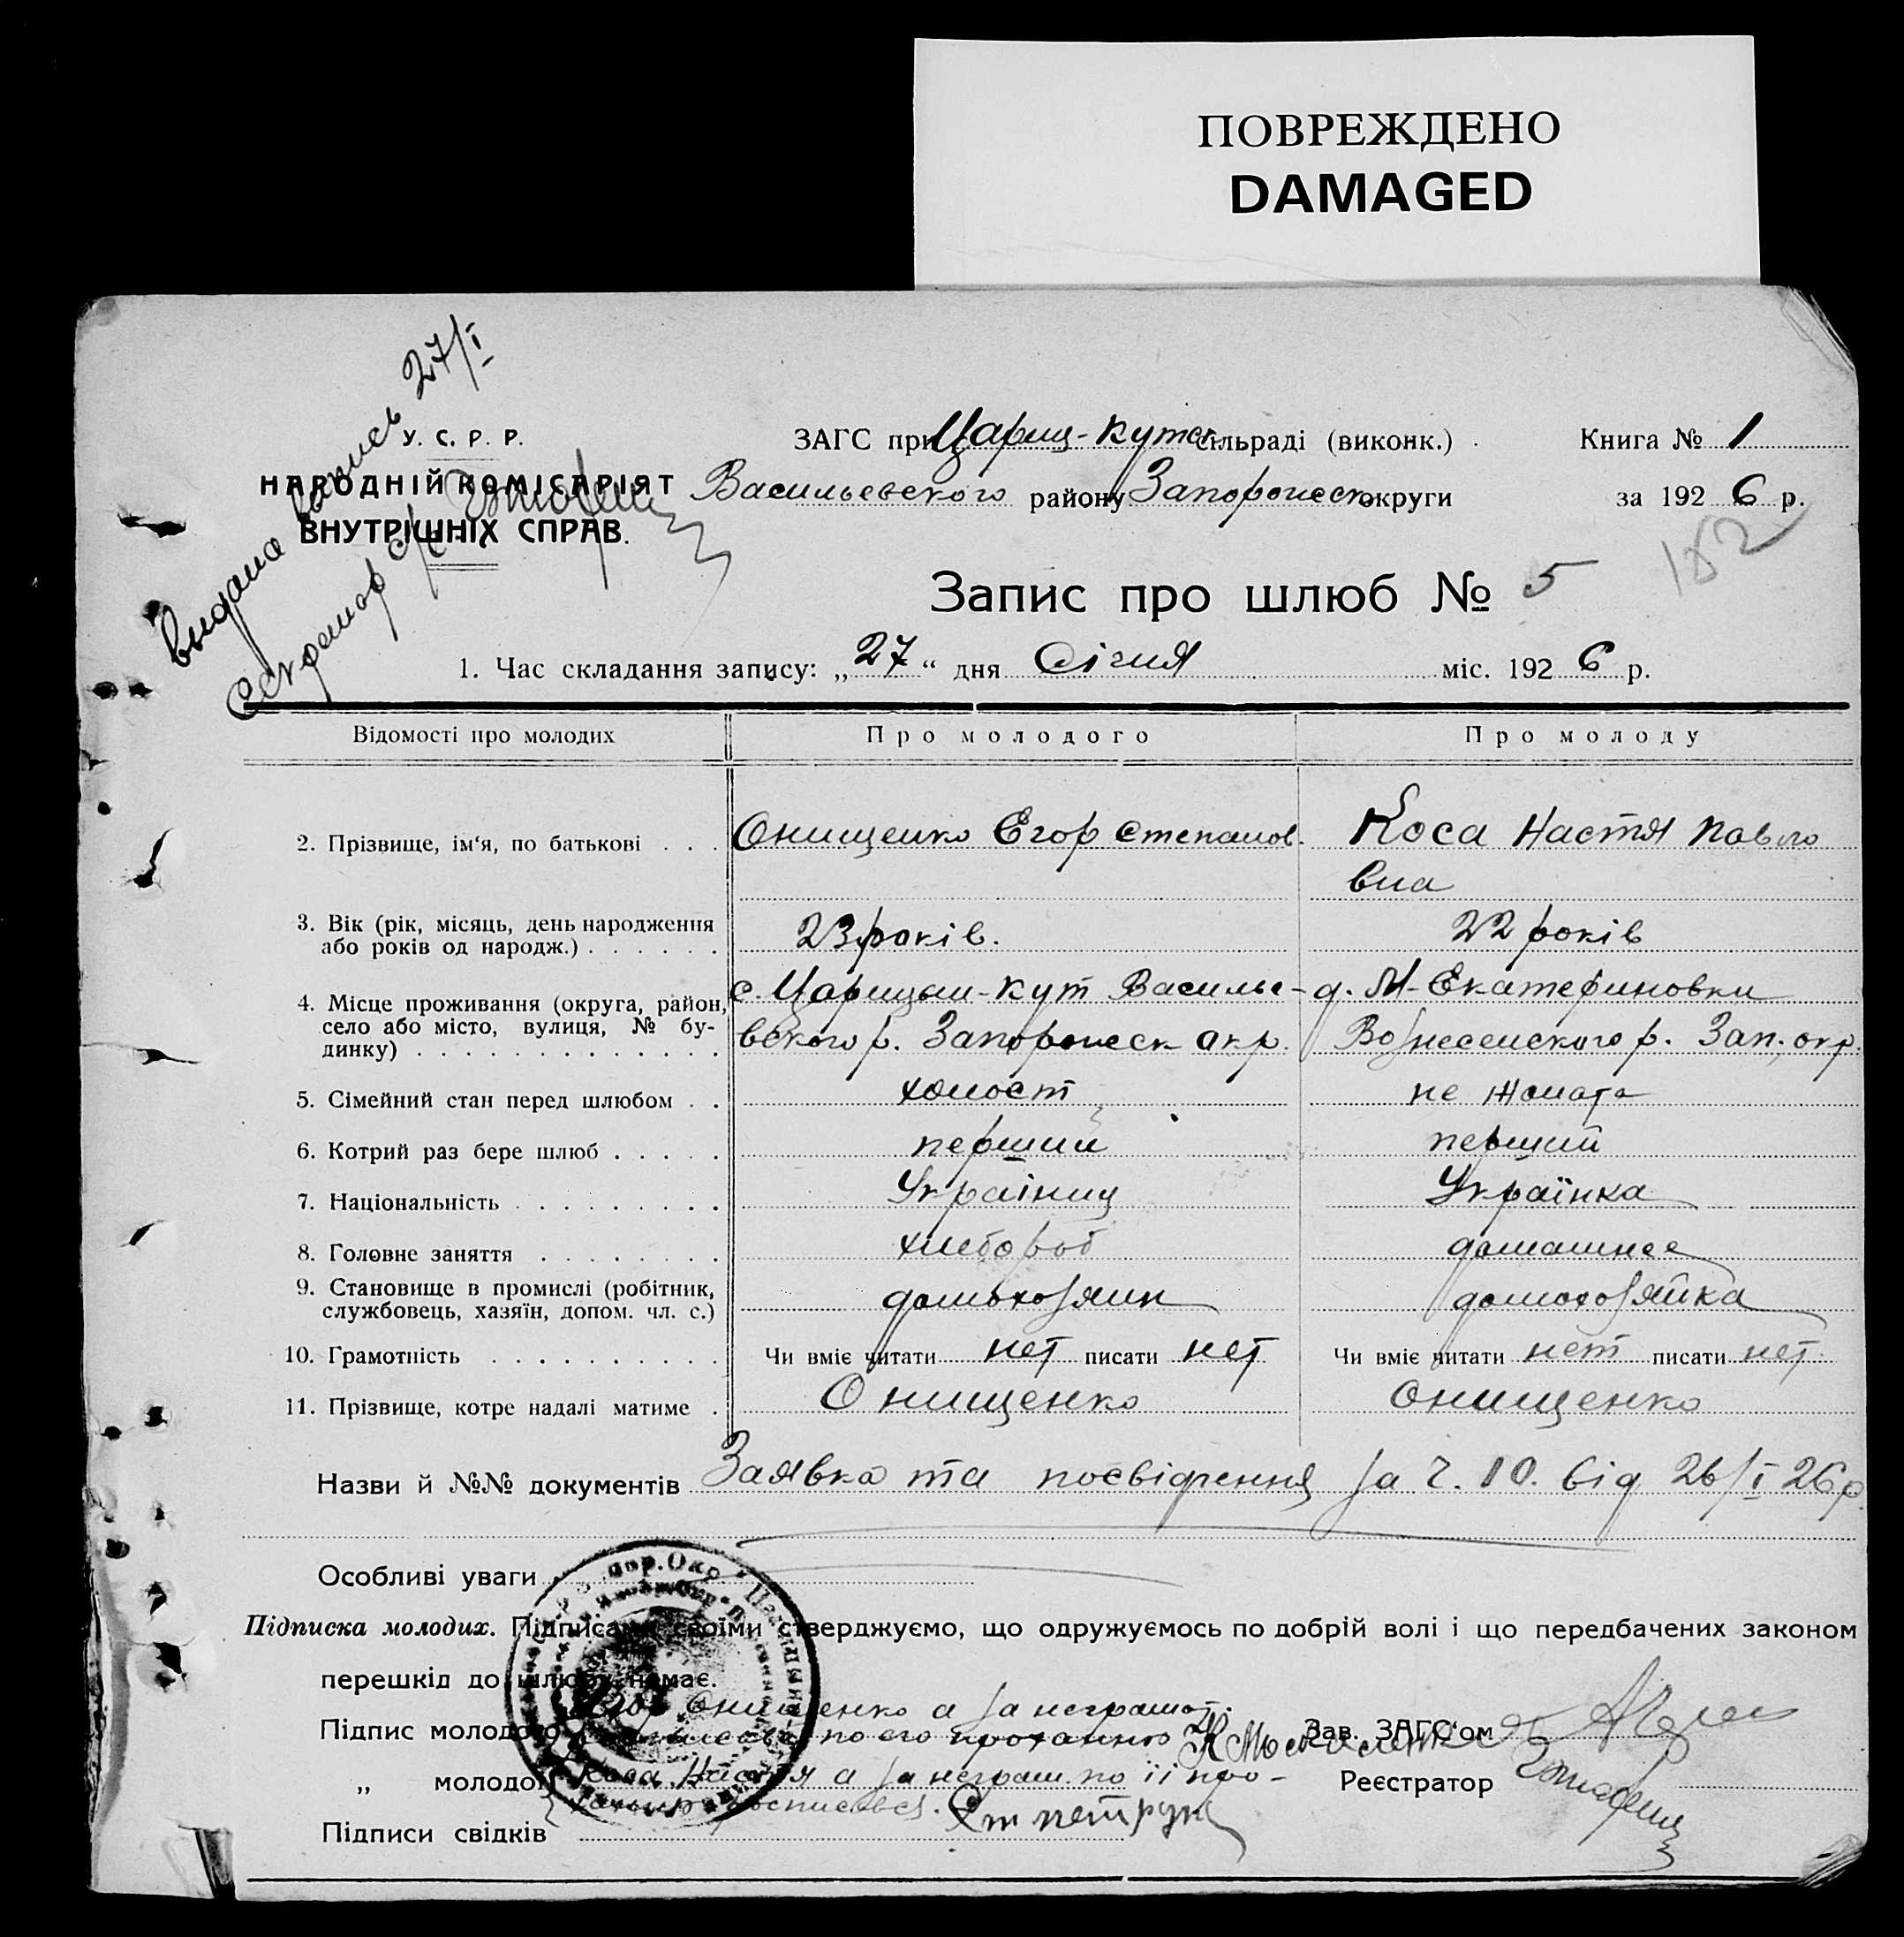 ПОВРЕЖДЕНО
DAMAGED
Выдана запись 27/I
У. С. Р. Р.
НАРОДНІЙ КОМІСАРІЯТ
ВНУТРІШНІХ СПРАВ.
ЗАГС при Цариц-Кутск сільраді (виконк.)
Васильевского району Запорожеск округи
Книга № 1
за 1926 р.
182
Запис про шлюб № 5
1. Час складання запису: „27“ дня Січня міс. 1926 р.
Відомості про молодих Про молодого Про молоду
2. Прізвище, ім'я, по батькові . . . Онищенко Егор Степанов. Коса Настя Павло
вна
3. Вік (рік, місяць, день народження
або років од народж.) . . . . . . 23 років. 22 років
4. Місце проживання (округа, район,
село або місто, вулиця, № бу-
динку) . . . . . . . . . . . . .
с. Царицын-Кут Василье-
вского р. Запорожеск окр.
д. М-Екатериновки
Вознесенского р. Зап. окр.
5. Сімейний стан перед шлюбом . . холост не жоната
6. Котрий раз бере шлюб . . . . . перший перший
7. Національність . . . . . . . . . Українец Українка
8. Головне заняття . . . . . . . . хлебороб домашнее
9. Становище в промислі (робітник,
службовець, хазяїн, допом. чл. с.) домохозяин домохозяйка
10. Грамотність . . . . . . . . . . Чи вміє читати нет писати нет Чи вміє читати нет писати нет
11. Прізвище, котре надалі матиме . Онищенко Онищенко
Назви й №№ документів Заявка та посвідчення за ч. 10. від 26/I 26 р.
Особливі уваги
Підписка молодих. Підписами своїми стверджуємо, що одружуємось по добрій волі і що передбачених законом
перешкід до шлюбу немає.
Підпис молодого Егор Онищенко а за неграмот.
по его проханню
„ молодої Коса Настя а за неграм. по її про-
росписався. Петрук
Підписи свідків
Зав. ЗАГС'ом
Реєстратор